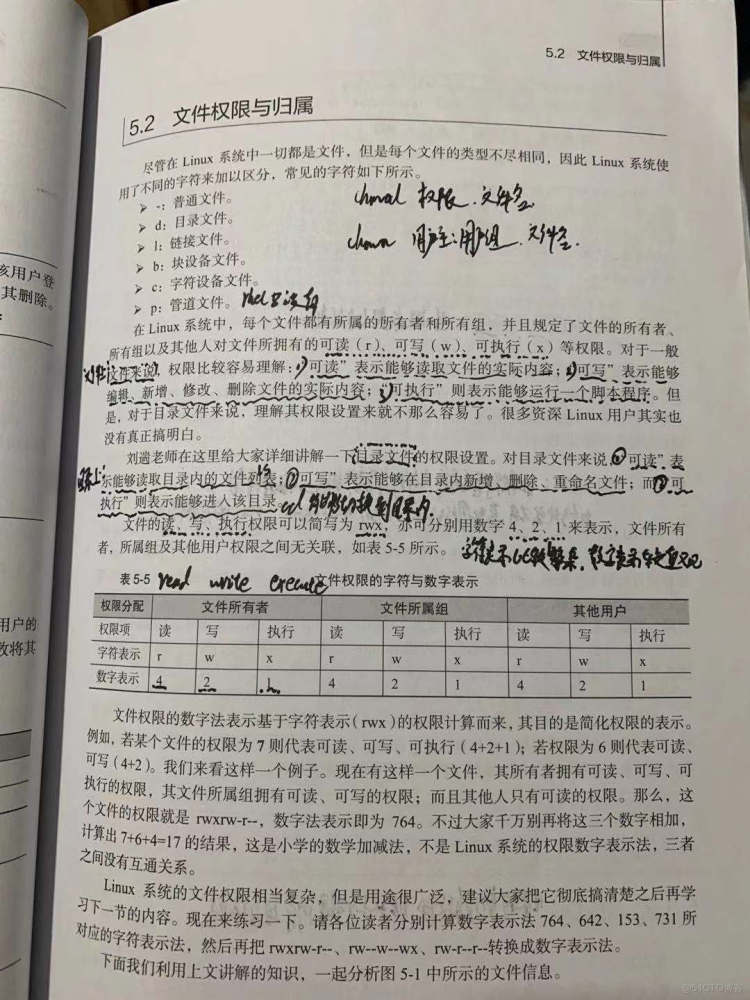 5.2 文件权限与归属
5.2 文件权限与归属
尽管在 Linux 系统中一切都是文件，但是每个文件的类型不尽相同，因此 Linux 系统使
用了不同的字符来加以区分，常见的字符如下所示。
➢ -: 普通文件。
chmod 权限 文件名
➢ d: 目录文件。
➢ l: 链接文件。
chown 用户主:用户组 文件名
➢ b: 块设备文件。
➢ c: 字符设备文件。
该用户登
其删除。
➢ p: 管道文件。
在 Linux 系统中，每个文件都有所属的所有者和所有组，并且规定了文件的所有者、
所有组以及其他人对文件所拥有的可读（r）、可写（w）、可执行（x）等权限。对于一般
文件来说，权限比较容易理解：可读”表示能够读取文件的实际内容；可写”表示能够
编辑、新增、修改、删除文件的实际内容；“可执行”则表示能够运行一个脚本程序。但
是，对于目录文件来说，理解其权限设置来就不那么容易了。很多资深 Linux 用户其实也
没有真正搞明白。
刘遄老师在这里给大家详细讲解一下目录文件的权限设置。对目录文件来说，可读”表
示能够读取目录内的文件列表；可写”表示能够在目录内新增、删除、重命名文件；而可
执行”则表示能够进入该目录。
文件的读、写、执行权限可以简写为 rwx，亦可分别用数字 4、2、1 来表示，文件所有
者，所属组及其他用户权限之间无关联，如表 5-5 所示。
表 5-5 read write execute 文件权限的字符与数字表示
权限分配 文件所有者 文件所属组 其他用户
权限项 读 写 执行 读 写 执行 读 写 执行
字符表示 r w x r w x r w x
数字表示 4 2 1 4 2 1 4 2 1
用户的
改将其
文件权限的数字法表示基于字符表示（rwx）的权限计算而来，其目的是简化权限的表示。
例如，若某个文件的权限为 7 则代表可读、可写、可执行（4+2+1）；若权限为 6 则代表可读、
可写（4+2）。我们来看这样一个例子。现在有这样一个文件，其所有者拥有可读、可写、可
执行的权限，其文件所属组拥有可读、可写的权限；而且其他人只有可读的权限。那么，这
个文件的权限就是 rwxrw-r--，数字法表示即为 764。不过大家千万别再将这三个数字相加，
计算出 7+6+4=17 的结果，这是小学的数学加减法，不是 Linux 系统的权限数字表示法，三者
之间没有互通关系。
Linux 系统的文件权限相当复杂，但是用途很广泛，建议大家把它彻底搞清楚之后再学
习下一节的内容。现在来练习一下。请各位读者分别计算数字表示法 764、642、153、731 所
对应的字符表示法，然后再把 rwxrw-r--、rw--w--wx、rw-r--r--转换成数字表示法。
下面我们利用上文讲解的知识，一起分析图 5-1 中所示的文件信息。
@51CTO博客